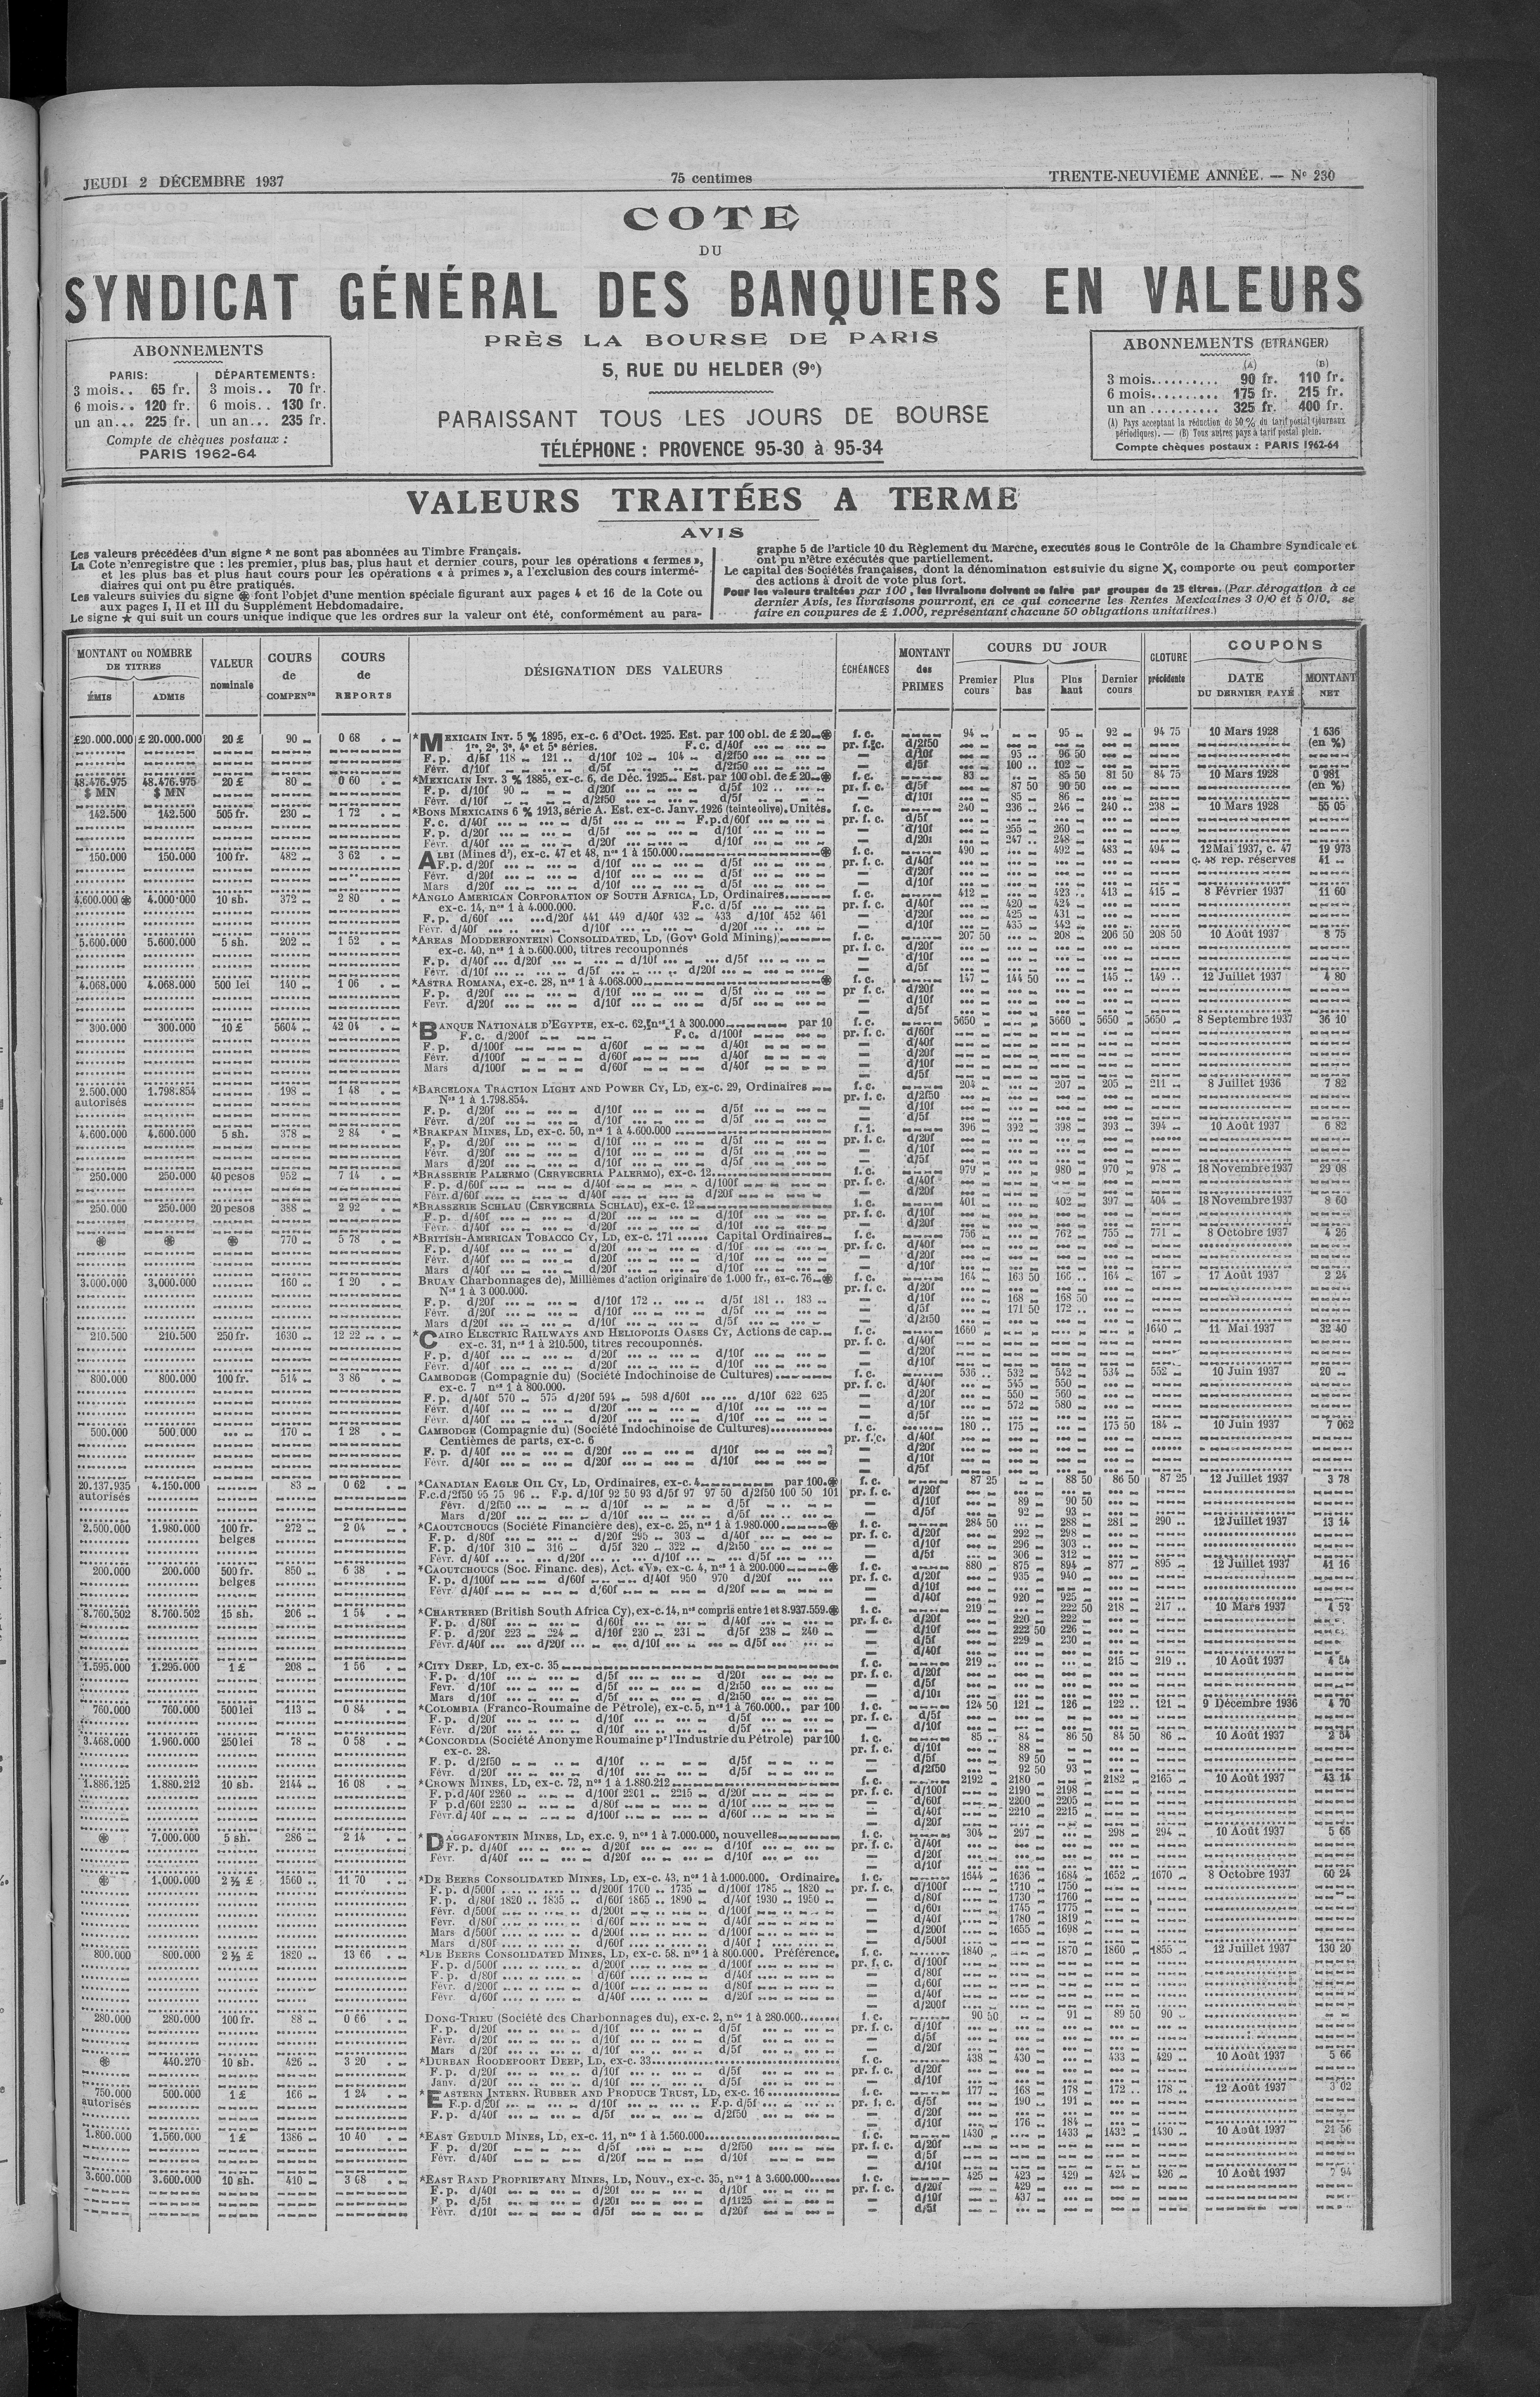 JEUDI 2 DÉCEMBRE 1937
75 centimes
TRENTE-NEUVIÈME ANNÉE. — Nº 230
COTE
DU
SYNDICAT GÉNÉRAL DES BANQUIERS EN VALEURS
PRÈS LA BOURSE DE PARIS
5, RUE DU HELDER (9e)
PARAISSANT TOUS LES JOURS DE BOURSE
TÉLÉPHONE : PROVENCE 95-30 à 95-34
ABONNEMENTS
PARIS: DÉPARTEMENTS:
3 mois.. 65 fr. 3 mois.. 70 fr.
6 mois.. 120 fr. 6 mois.. 130 fr.
un an... 225 fr. un an... 235 fr.
Compte de chèques postaux :
PARIS 1962-64
ABONNEMENTS (ETRANGER)
(A) (B)
3 mois.......... 90 fr. 110 fr.
6 mois.......... 175 fr. 215 fr.
un an .......... 325 fr. 400 fr.
(A) Pays acceptant la réduction de 50 % du tarif postal (journaux
périodiques). — (B) Tous autres pays à tarif postal plein.
Compte chèques postaux : PARIS 1962-64
VALEURS TRAITÉES A TERME
AVIS
Les valeurs précédées d'un signe * ne sont pas abonnées au Timbre Français.
La Cote n'enregistre que : les premier, plus bas, plus haut et dernier cours, pour les opérations « fermes »,
et les plus bas et plus haut cours pour les opérations « à primes », a l'exclusion des cours intermé-
diaires qui ont pu être pratiqués.
Les valeurs suivies du signe ⊛ font l'objet d'une mention spéciale figurant aux pages 4 et 16 de la Cote ou
aux pages I, II et III du Supplément Hebdomadaire.
Le signe ★ qui suit un cours unique indique que les ordres sur la valeur ont été, conformément au para-
graphe 5 de l'article 10 du Règlement du Marche, executés sous le Contrôle de la Chambre Syndicale et
ont pu n'être exécutés que partiellement.
Le capital des Sociétés françaises, dont la dénomination est suivie du signe X, comporte ou peut comporter
des actions à droit de vote plus fort.
Pour les valeurs traitées par 100, les livraisons doivent se faire par groupes de 25 titres. (Par dérogation à ce
dernier Avis, les livraisons pourront, en ce qui concerne les Rentes Mexicaines 3 0/0 et 5 0/0, se
faire en coupures de £ 1.000, représentant chacune 50 obligations unitaires.)
MONTANT ou NOMBRE DE TITRES
ÉMIS ADMIS
VALEUR nominale
COURS de COMPENon
COURS de REPORTS
DÉSIGNATION DES VALEURS
ÉCHÉANCES
MONTANT des PRIMES
COURS DU JOUR
Premier cours Plus bas Plus haut Dernier cours
CLOTURE précédente
COUPONS
DATE DU DERNIER PAYÉ
MONTANT NET
£20.000.000 £ 20.000.000 20 £ 90 0 68 *MEXICAIN INT. 5 % 1895, ex-c. 6 d'Oct. 1925. Est. par 100 obl. de £ 20 ⊛ f. c. 94 95 92 94 75 10 Mars 1928 1 636
1re, 2e, 3e, 4e et 5e séries. F.c. d/40f (en %)
F. p. d/5f 118 121 d/10f 102 104 d/2f50 d/10f 95 96 50
Févr. d/10f d/5f d/2f50 d/5f 100 102
48.476.975 48.476.975 20 £ 80 0 60 *MEXICAIN INT. 3 % 1885, ex-c. 6, de Déc. 1925. Est. par 100 obl. de £ 20 ⊛ f. c. 83 85 50 81 50 84 75 10 Mars 1928 0 981
$ MN $ MN F. p. d/10f 90 d/20f d/5f 102 pr. f. c. d/5f 87 50 90 50 (en %)
Févr. d/10f d/2f50 d/5f d/10f 85 86
142.500 142.500 505 fr. 230 1 72 *BONS MEXICAINS 6 % 1913, série A. Est. ex-c. Janv. 1926 (teinte olive). Unités. f. c. 240 236 246 240 238 10 Mars 1928 55 05
F. c. d/40f d/5f F.p.d/60f pr. f. c. d/5f
F. p. d/20f d/5f d/10f d/10f 255 260
Févr. d/40f d/20f d/10f d/20f 247 248
150.000 150.000 100 fr. 482 3 62 ALBI (Mines d'), ex-c. 47 et 48, nos 1 à 150.000 ⊛ f. c. 490 492 483 494 12 Mai 1937, c. 47 19 973
F. p. d/20f d/10f d/5f pr. f. c. d/40f c. 48 rep. réserves 41
Févr. d/20f d/10f d/5f d/20f
Mars d/20f d/10f d/5f d/10f
4.600.000 ⊛ 4.000.000 10 sh. 372 2 80 *ANGLO AMERICAN CORPORATION OF SOUTH AFRICA, LD, Ordinaires f. c. 412 423 413 415 8 Février 1937 11 60
ex-c. 14, nos 1 à 4.000.000. F.c. d/5f pr. f. c. d/40f 420 424
F. p. d/60f d/20f 441 449 d/40f 432 433 d/10f 452 461 d/20f 425 431
Févr. d/40f d/10f d/20f d/10f 435 442
5.600.000 5.600.000 5 sh. 202 1 52 *AREAS MODDERFONTEIN) CONSOLIDATED, LD, (Govt Gold Mining) f. c. 207 50 208 206 50 208 50 10 Août 1937 8 75
ex-c. 40, nos 1 à 5.600.000, titres recouponnés pr. f. c. d/20f
F. p. d/40f d/20f d/10f d/5f d/10f
Févr. d/10f d/5f d/20f d/5f
4.068.000 4.068.000 500 lei 140 1 06 *ASTRA ROMANA, ex-c. 28, nos 1 à 4.068.000 ⊛ f. c. 147 144 50 145 149 12 Juillet 1937 4 80
F. p. d/20f d/10f d/5f pr f. c. d/20f
Févr. d/20f d/10f d/5f d/10f
d/5f
300.000 300.000 10 £ 5604 42 04 *BANQUE NATIONALE D'EGYPTE, ex-c. 62, nos 1 à 300.000 par 10 f. c. 5650 5660 5650 5650 8 Septembre 1937 36 10
F. c. d/200f F.c. d/100f pr. f. c. d/60f
F. p. d/100f d/60f d/40f d/40f
Févr. d/100f d/60f d/40f d/20f
Mars d/100f d/60f d/40f d/10f
d/5f
2.500.000 1.798.854 198 1 48 *BARCELONA TRACTION LIGHT AND POWER CY, LD, ex-c. 29, Ordinaires f. c. 204 207 205 211 8 Juillet 1936 7 82
autorisés Nos 1 à 1.798.854. pr. f. c. d/2f50
F. p. d/20f d/10f d/5f d/10f
Févr. d/20f d/10f d/5f d/5f
4.600.000 4.600.000 5 sh. 378 2 84 *BRAKPAN MINES, LD, ex-c. 50, nos 1 à 4.600.000 f. 1. 396 392 398 393 394 10 Août 1937 6 82
F. p. d/20f d/10f d/5f pr. f. c. d/20f
Févr. d/20f d/10f d/5f d/10f
Mars d/20f d/10f d/5f d/5f
250.000 250.000 40 pesos 952 7 14 *BRASSERIE PALERMO (CERVECERIA PALERMO), ex-c. 12 f. c. 979 980 970 978 18 Novembre 1937 29 08
F. p. d/60f d/40f d/100f pr. f. c. d/40f
Févr. d/60f d/40f d/20f d/20f
250.000 250.000 20 pesos 388 2 92 *BRASSERIE SCHLAU (CERVECERIA SCHLAU), ex-c. 12 f. c. 401 402 397 404 18 Novembre 1937 8 60
F. p. d/40f d/20f d/10f pr. f. c. d/10f
Févr. d/40f d/20f d/10f d/20f
⊛ ⊛ ⊛ 770 5 78 *BRITISH-AMERICAN TOBACCO CY, LD, ex-c. 171 Capital Ordinaires f. c. 756 762 755 771 8 Octobre 1937 4 26
F. p. d/40f d/20f d/10f pr. f. c. d/40f
Févr. d/40f d/20f d/10f d/20f
Mars d/40f d/20f d/10f d/10f
3.000.000 3.000.000 160 1 20 BRUAY Charbonnages de), Millièmes d'action originaire de 1.000 fr., ex-c. 76 ⊛ f. c. 164 163 50 166 164 167 17 Août 1937 2 24
Nos 1 à 3 000.000. pr. f. c. d/20f
F. p. d/20f d/10f 172 d/5f 181 183 d/10f 168 168 50
Févr. d/20f d/10f d/5f d/5f 171 50 172
Mars d/20f d/10f d/5f d/2f50
210.500 210.500 250 fr. 1630 12 22 *CAIRO ELECTRIC RAILWAYS AND HELIOPOLIS OASES CY, Actions de cap. f. c. 1660 1640 11 Mai 1937 32 40
ex-c. 31, nos 1 à 210.500, titres recouponnés. pr. f. c. d/40f
F. p. d/40f d/20f d/10f d/20f
Févr. d/40f d/20f d/10f d/10f
800.000 800.000 100 fr. 514 3 86 CAMBODGE (Compagnie du) (Société Indochinoise de Cultures) f. c. 536 532 542 534 552 10 Juin 1937 20
ex-c. 7 nos 1 à 800.000. pr. f. c. d/40f 545 550
F. p. d/40f 570 575 d/20f 594 598 d/60f d/10f 622 625 d/20f 550 560
Févr. d/40f d/20f d/10f d/10f 572 580
Févr. d/40f d/20f d/10f d/5f
500.000 500.000 170 1 28 CAMBODGE (Compagnie du) (Société Indochinoise de Cultures) f. c. 180 175 175 50 184 10 Juin 1937 7 062
Centièmes de parts, ex-c. 6 pr. f. c. d/40f
F. p. d/40f d/20f d/10f d/20f
Févr. d/40f d/20f d/10f d/10f
d/5f
20.137.935 4.150.000 83 0 62 *CANADIAN EAGLE OIL CY, LD, Ordinaires, ex-c. 4 par 100 ⊛ f. c. 87 25 88 50 86 50 87 25 12 Juillet 1937 3 78
autorisés F.c.d/2f50 95 75 96 F.p. d/10f 92 50 93 d/5f 97 97 50 d/2f50 100 50 101 pr. f. c. d/20f
Févr. d/2f50 d/10f d/5f d/10f 89 90 50
Mars d/20f d/10f d/5f d/5f 92 93
2.500.000 1.980.000 100 fr. belges 272 2 04 *CAOUTCHOUCS (Société Financière des), ex-c. 25, nos 1 à 1.980.000 ⊛ f. c. 284 50 288 281 290 12 Juillet 1937 13 14
F. p. d/80f d/20f 295 303 d/40f pr. f. c. d/20f 292 298
F. p. d/10f 310 316 d/5f 320 322 d/2f50 d/10f 296 303
Févr. d/40f d/20f d/10f d/5f d/5f 306 312
200.000 200.000 500 fr. belges 850 6 38 *CAOUTCHOUCS (Soc. Financ. des), Act. «V», ex-c. 4, nos 1 à 200.000 ⊛ f. c. 880 875 894 877 895 12 Juillet 1937 41 16
F. p. d/100f d/60f d/40f 950 970 d/20f pr. f. c. d/20f 935 940
Févr d/40f d/60f d/20f d/10f
d/40f 920 925
8.760.502 8.760.502 15 sh. 206 1 54 *CHARTERED (British South Africa Cy), ex-c. 14, nos compris entre 1 et 8.937.559 ⊛ f. c. 219 222 50 218 217 10 Mars 1937 4 52
F. p. d/80f d/60f d/40f pr. f. c. d/20f 220 222
F. p. d/20f 223 224 d/10f 230 231 d/5f 238 240 d/10f 222 50 226
Févr. d/40f d/20f d/10f d/5f d/5f 229 230
d/40f
1.595.000 1.295.000 1 £ 208 1 56 *CITY DEEP, LD, ex-c. 35 f. c. 219 215 219 10 Août 1937 4 54
F. p. d/10f d/5f d/20f pr. f. c. d/20f
Févr. d/10f d/5f d/2f50 d/5f
Mars d/10f d/5f d/2f50 d/10f
760.000 760.000 500 lei 113 0 84 *COLOMBIA (Franco-Roumaine de Pétrole), ex-c. 5, nos 1 à 760.000 par 100 f. c. 124 50 121 126 122 121 9 Décembre 1936 4 70
F. p. d/20f d/10f d/5f pr. f. c. d/5f
Févr. d/20f d/10f d/5f d/10f
3.468.000 1.960.000 250 lei 78 0 58 *CONCORDIA (Société Anonyme Roumaine pr l'Industrie du Pétrole) par 100 f. c. 85 84 86 50 84 50 86 10 Août 1937 2 54
ex-c. 28. pr. f. c. d/10f 88
F. p. d/2f50 d/10f d/5f d/5f 89 50
Févr. d/20f d/10f d/5f d/2f50 92 50 93
1.886.125 1.880.212 10 sh. 2144 16 08 *CROWN MINES, LD, ex-c. 72, nos 1 à 1.880.212 f. c. 2192 2180 2182 2165 10 Août 1937 43 14
F. p.d/40f 2260 d/100f 2201 2215 d/20f pr. f. c. d/100f 2190 2198
F p.d/60f 2230 d/80f d/10f d/60f 2200 2205
Févr.d/ 40f d/100f d/60f d/40f 2210 2215
d/20f
⊛ 7.000.000 5 sh. 286 2 14 *DAGGAFONTEIN MINES, LD, ex.c. 9, nos 1 à 7.000.000, nouvelles f. c. 304 297 298 294 10 Août 1937 5 66
F. p. d/40f d/20f d/10f pr. f. c. d/40f
Févr. d/40f d/20f d/10f d/20f
d/10f
⊛ 1.000.000 2 ½ £ 1560 11 70 *DE BEERS CONSOLIDATED MINES, LD, ex-c. 43, nos 1 à 1.000.000. Ordinaire. f. c. 1644 1636 1684 1652 1670 8 Octobre 1937 60 24
F. p. d/500f d/200f 1700 1735 d/100f 1785 1820 pr. f. c. d/100f 1710 1750
F. p. d/80f 1820 1835 d/60f 1865 1890 d/40f 1930 1950 d/80f 1730 1760
Févr. d/500f d/200f d/100f d/60f 1745 1775
Févr. d/80f d/60f d/40f d/40f 1780 1819
Mars d/500f d/200f d/100f d/200f 1655 1698
Mars d/80f d/60f d/40f d/500f
800.000 800.000 2 ½ £ 1820 13 66 *DE BEERS CONSOLIDATED MINES, LD, ex-c. 58. nos 1 à 800.000. Préférence. f. c. 1840 1870 1860 1855 12 Juillet 1937 130 20
F. p. d/500f d/200f d/100f pr. f. c. d/100f
F. p. d/80f d/60f d/40f d/80f
Févr. d/200f d/100f d/80f d/60f
Févr. d/60f d/40f d/20f d/40f
d/200f
280.000 280.000 100 fr. 88 0 66 DONG-TRIEU (Société des Charbonnages du), ex-c. 2, nos 1 à 280.000 f. c. 90 50 91 89 50 90
F. p. d/20f d/10f d/5f pr. f. c. d/10f
Févr. d/20f d/10f d/5f d/5f
Mars d/20f d/10f d/5f d/20f
⊛ 440.270 10 sh. 426 3 20 *DURBAN ROODEPOORT DEEP, LD, ex-c. 33 f. c. 438 430 433 429 10 Août 1937 5 66
F. p. d/20f d/10f d/5f pr. f. c. d/20f
Janv. d/20f d/10f d/5f d/10f
750.000 500.000 1 £ 166 1 24 *EASTERN INTERN. RUBBER AND PRODUCE TRUST, LD, ex-c. 16 f. c. 177 168 178 172 178 12 Août 1937 3 02
autorisés F.p. d/20f d/10f F.p. d/5f pr. f. c. d/5f 190 191
F. p. d/40f d/5f d/2f50 d/20f
d/10f 176 184
1.800.000 1.560.000 1 £ 1386 10 40 *EAST GEDULD MINES, LD, ex-c. 11, nos 1 à 1.560.000 f. c. 1430 1433 1432 1430 10 Août 1937 21 56
F p. d/20f d/5f d/2f50 pr. f. c. d/20f
Févr. d/40f d/20f d/10f d/5f
d/10f
3.600.000 3.600.000 10 sh. 410 3 68 *EAST RAND PROPRIETARY MINES, LD, Nouv., ex-c. 35, nos 1 à 3.600.000 f. c. 425 423 429 424 426 10 Août 1937 7 94
F. p. d/40f d/20f d/10f pr. f. c. d/20f 429
F p. d/5f d/20f d/1f25 d/10f 437
Févr. d/10f d/5f d/20f d/5f